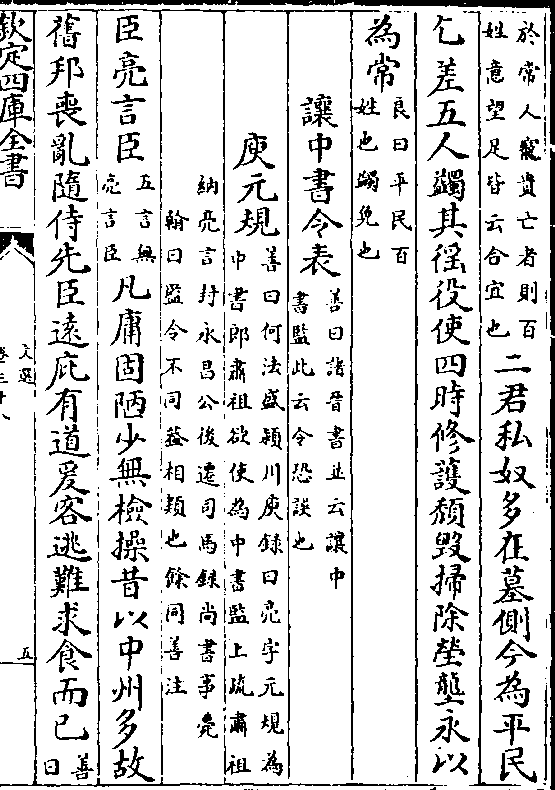 於常人竊貴亡者則百
姓意望足皆云合宜也
二君私奴多在墓側今為平民
乞差五人蠲其徭役使四時修護頽毁掃除塋壟永以
為常
良曰平民百
姓也蠲免也
讓中書令表
善曰諸晉書並云讓中
書監此云令恐誤也
庾元規
善曰何法盛潁川庾録曰亮字元規為
中書郎肅祖欲使為中書監上疏肅祖
納亮言封永昌公後遷司馬録尚書事薨
翰曰監令不同葢相類也餘同善注
臣亮言臣
五言無
亮言臣
凡庸固陋少無檢操昔以中州多故
舊邦喪亂隨侍先臣遠庇有道爰容逃難求食而已
善
曰
欽定四庫全書
文選
卷三十八
五